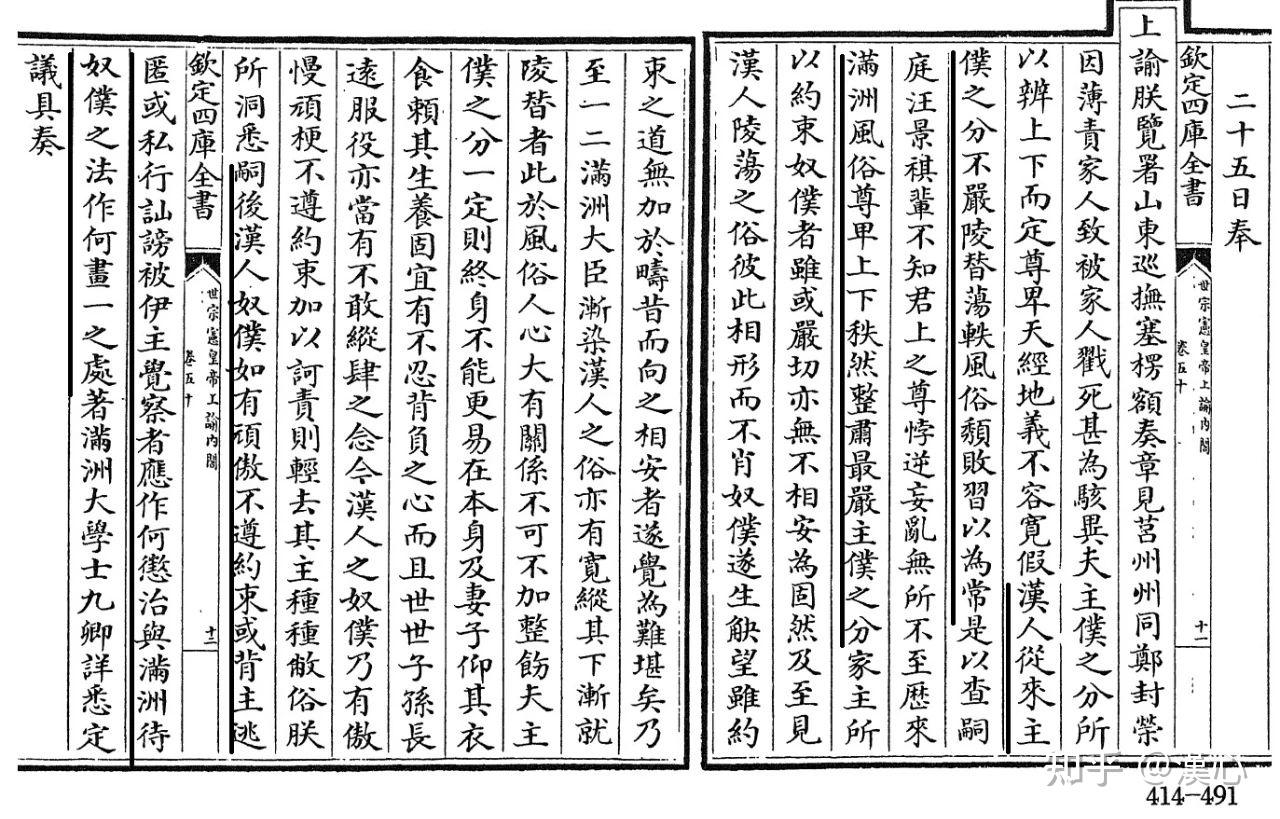 二十五日奉
上諭朕覽署山東巡撫塞楞額奏章見莒州州同鄭封榮
因薄責家人致被家人戳死甚為駭異夫主僕之分所
以辨上下而定尊卑天經地義不容寬假漢人從來主
僕之分不嚴陵替蕩軼風俗頹敗習以為常是以查嗣
庭汪景祺輩不知君上之尊悖逆妄亂無所不至歷來
滿洲風俗尊卑上下秩然整肅最嚴主僕之分家主所
以約束奴僕者雖或嚴切亦無不相安為固然及至見
漢人陵蕩之俗彼此相形而不肖奴僕遂生觖望雖約
欽定四庫全書
世宗憲皇帝上諭內閣
卷五十
十一
束之道無加於疇昔而向之相安者遂覺為難堪矣乃
至一二滿洲大臣漸染漢人之俗亦有寬縱其下漸就
陵替者此於風俗人心大有關係不可不加整飭夫主
僕之分一定則終身不能更易在本身及妻子仰其衣
食賴其生養固宜有不忍背負之心而且世世子孫長
遠服役亦當有不敢縱肆之念今漢人之奴僕乃有傲
慢頑梗不遵約束加以訶責則輕去其主種種敝俗朕
所洞悉嗣後漢人奴僕如有頑傲不遵約束或背主逃
欽定四庫全書
世宗憲皇帝上諭內閣
卷五十
十二
匿或私行訕謗被伊主覺察者應作何懲治與滿洲待
奴僕之法作何畫一之處著滿洲大學士九卿詳悉定
議具奏
知乎 @漢心
414-491